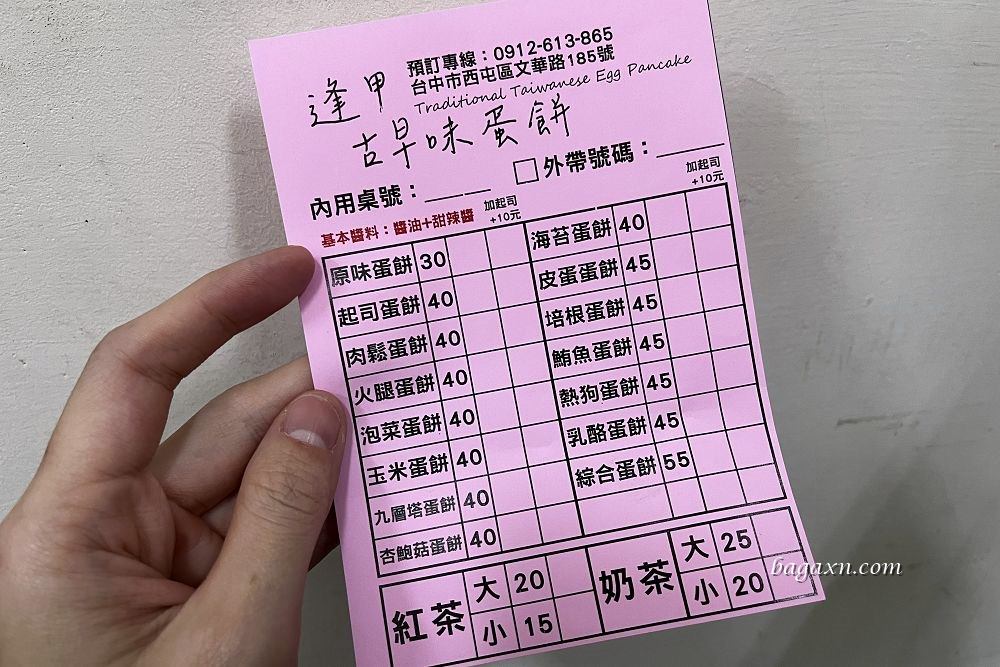 預訂專線：0912-613-865
台中市西屯區文華路185號
逢甲 Traditional Taiwanese Egg Pancake
古早味蛋餅
內用桌號：______ □外帶號碼：______
基本醬料：醬油+甜辣醬
加起司 +10元
加起司 +10元
原味蛋餅 30
起司蛋餅 40
肉鬆蛋餅 40
火腿蛋餅 40
泡菜蛋餅 40
玉米蛋餅 40
九層塔蛋餅 40
杏鮑菇蛋餅 40
海苔蛋餅 40
皮蛋蛋餅 45
培根蛋餅 45
鮪魚蛋餅 45
熱狗蛋餅 45
乳酪蛋餅 45
綜合蛋餅 55
紅茶 大 20
小 15
奶茶 大 25
小 20
bagaxn.com